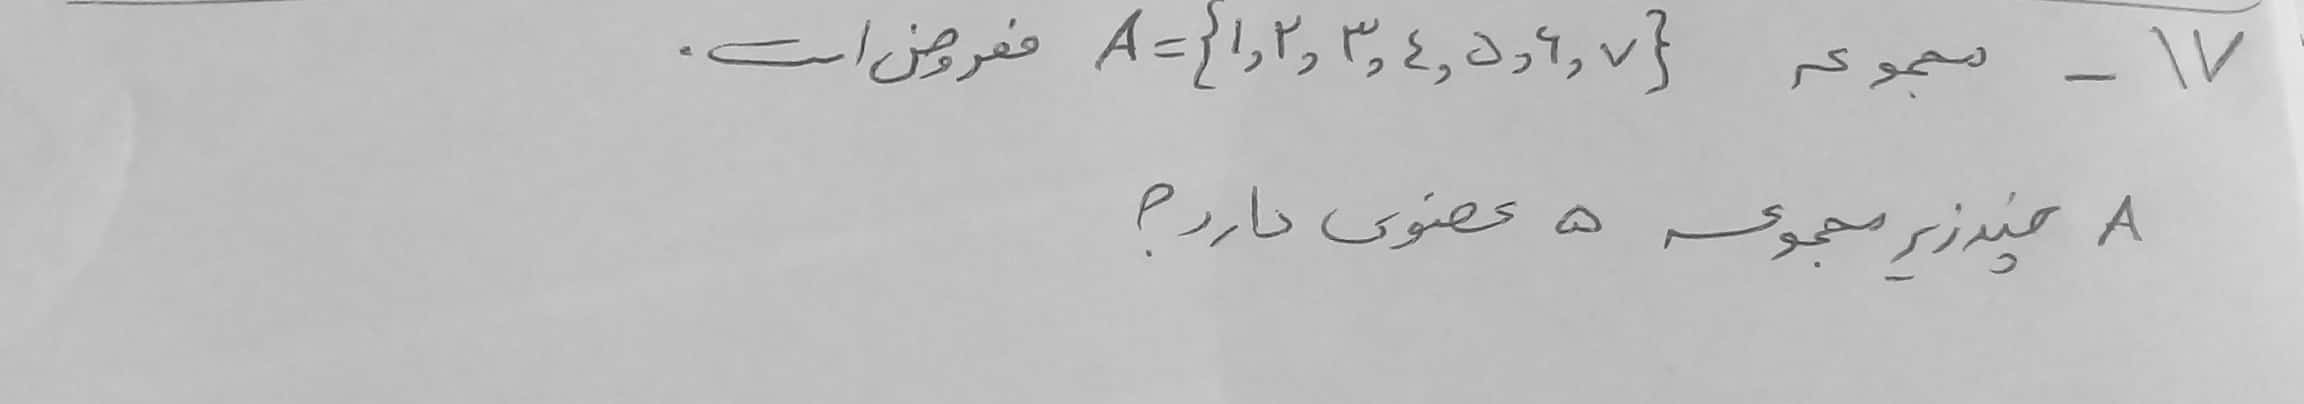 ۱۷ - مجموعه A = {۱, ۲, ۳, ٤, ۵, ۶, ۷} مفروض است.
A چند زیر مجموعه ۵ عضوی دارد؟